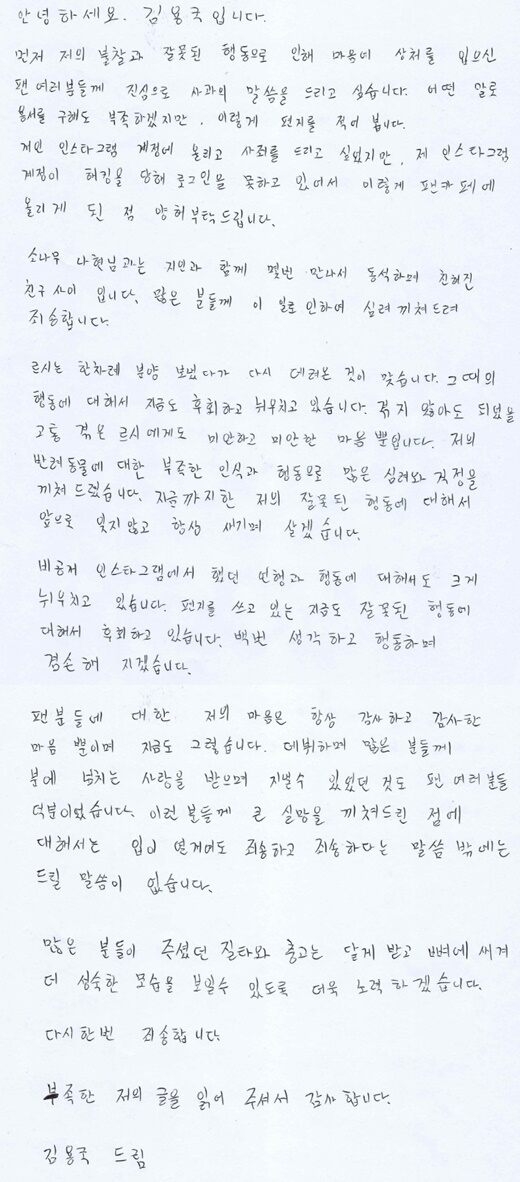 안녕하세요. 김용국입니다.
먼저 저의 불찰과 잘못된 행동으로 인해 마음에 상처를 입으신
팬 여러분들께 진심으로 사과의 말씀을 드리고 싶습니다. 어떤 말로
용서를 구해도 부족하겠지만, 이렇게 편지를 적어 봅니다.
개인 인스타그램 계정에 올리고 사죄를 드리고 싶었지만, 제 인스타그램
계정이 해킹을 당해 로그인을 못하고 있어서 이렇게 팬카페에
올리게 된 점 양해부탁드립니다.
소나무 나현님과는 지인과 함께 몇번 만나서 동석하며 친해진
친구 사이 입니다. 많은 분들께 이 일로 인하여 심려 끼쳐드려
죄송합니다.
르시는 한차례 분양 보냈다가 다시 데려온 것이 맞습니다. 그 때의
행동에 대해서 지금도 후회하고 뉘우치고 있습니다. 겪지 않아도 되었을
고통 겪은 르시에게도 미안하고 미안한 마음 뿐입니다. 저의
반려동물에 대한 부족한 인식과 행동으로 많은 심려와 걱정을
끼쳐 드렸습니다. 지금까지한 저의 잘못된 행동에 대해서
앞으로 잊지않고 항상 새기며 살겠습니다.
비공개 인스타그램에서 했던 언행과 행동에 대해서도 크게
뉘우치고 있습니다. 편지를 쓰고 있는 지금도 잘못된 행동에
대해서 후회하고 있습니다. 백번 생각하고 행동하며
겸손해 지겠습니다.
팬분들에 대한 저의 마음은 항상 감사하고 감사한
마음 뿐이며 지금도 그렇습니다. 데뷔하며 많은 분들께
분에 넘치는 사랑을 받으며 지낼수 있었던 것도 팬 여러분들
덕분이었습니다. 이런 분들께 큰 실망을 끼쳐드린 점에
대해서는 입이 열개여도 죄송하고 죄송하다는 말씀 밖에는
드릴 말씀이 없습니다.
많은 분들이 주셨던 질타와 충고는 달게 받고 뼈에 새겨
더 성숙한 모습을 보일수 있도록 더욱 노력하겠습니다.
다시한번 죄송합니다.
부족한 저의 글을 읽어 주셔서 감사합니다.
김용국 드림